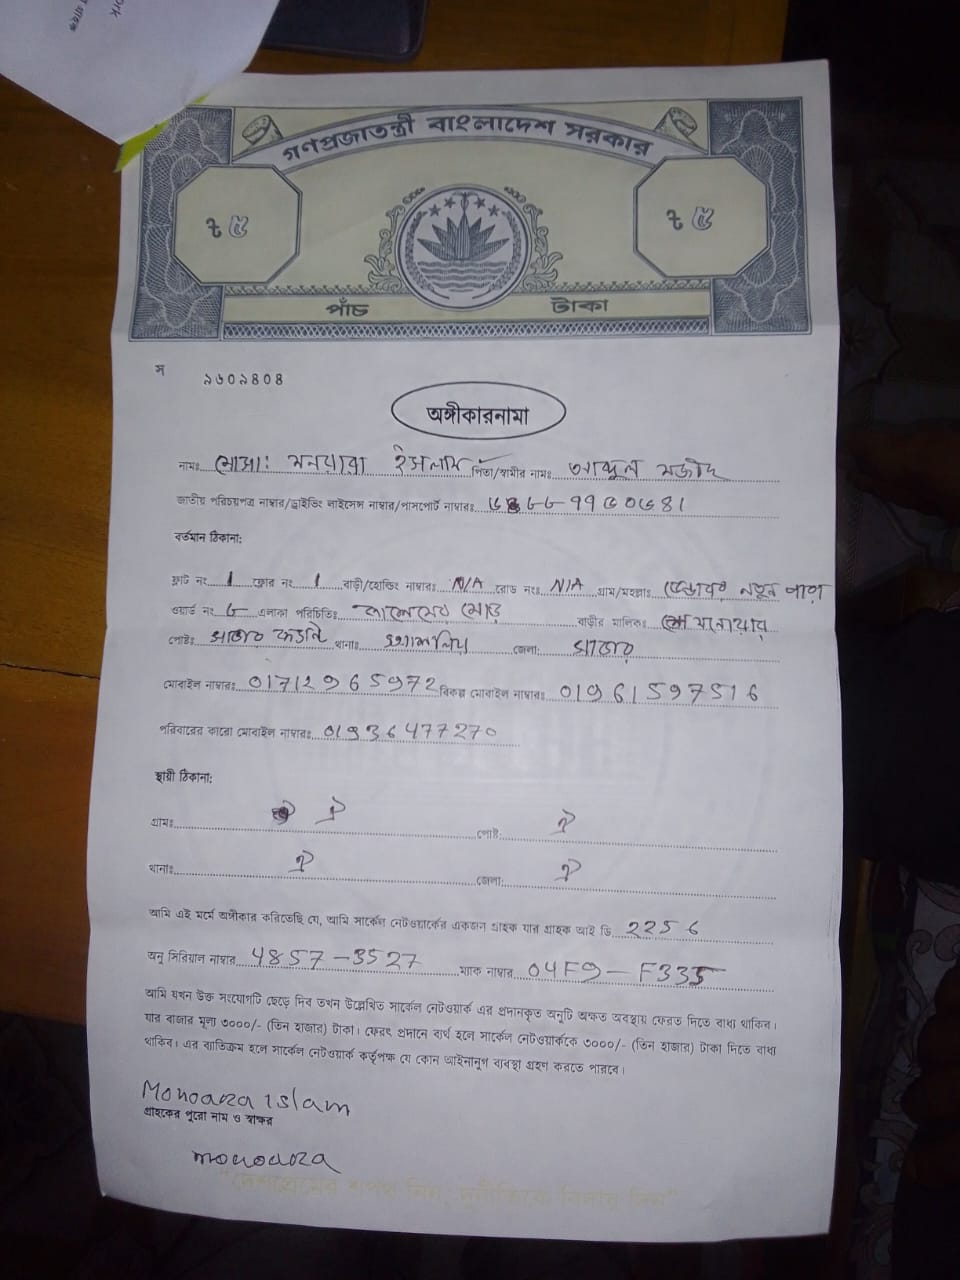 গণপ্রজাতন্ত্রী বাংলাদেশ সরকার
৳ ৫ ৳ ৫
পাঁচ টাকা
স ৯৬০৯৪০৪
অঙ্গীকারনামা
নামঃ মোসা: মনয়ারা ইসলাম পিতা/স্বামীর নামঃ আব্দুল মজিদ
জাতীয় পরিচয়পত্র নাম্বার/ড্রাইভিং লাইসেন্স নাম্বার/পাসপোর্ট নাম্বারঃ
বর্তমান ঠিকানা:
ফ্লাট নং 1 ফ্লোর নং 1 বাড়ী/হোল্ডিং নাম্বারঃ N/A রোড নংঃ N/A গ্রাম/মহল্লাঃ নতুন পাড়া
ওয়ার্ড নং ৮ এলাকা পরিচিতিঃ মোড় বাড়ীর মালিকঃ মনোয়ারা
পোষ্টঃ থানাঃ জেলা:
মোবাইল নাম্বারঃ 01712965972 বিকল্প মোবাইল নাম্বারঃ 01961597516
পরিবারের কারো মোবাইল নাম্বারঃ 01936477270
স্থায়ী ঠিকানা:
গ্রামঃ ঐ পোষ্ট: ঐ
থানাঃ ঐ জেলা: ঐ
আমি এই মর্মে অঙ্গীকার করিতেছি যে, আমি সার্কেল নেটওয়ার্কের একজন গ্রাহক যার গ্রাহক আই ডি 2256
অনু সিরিয়াল নাম্বার 4857-3527 ম্যাক নাম্বার 04F9-F335
আমি যখন উক্ত সংযোগটি ছেড়ে দিব তখন উল্লেখিত সার্কেল নেটওয়ার্ক এর প্রদানকৃত অনুটি অক্ষত অবস্থায় ফেরত দিতে বাধ্য থাকিব।
যার বাজার মূল্য ৩০০০/- (তিন হাজার) টাকা। ফেরৎ প্রদানে ব্যর্থ হলে সার্কেল নেটওয়ার্ককে ৩০০০/- (তিন হাজার) টাকা দিতে বাধ্য
থাকিব। এর ব্যতিক্রম হলে সার্কেল নেটওয়ার্ক কর্তৃপক্ষ যে কোন আইনানুগ ব্যবস্থা গ্রহণ করতে পারবে।
Monoara islam
গ্রাহকের পুরো নাম ও স্বাক্ষর
monoara
"দেশপ্রেমের শপথ নিন, দুর্নীতিকে বিদায় দিন"